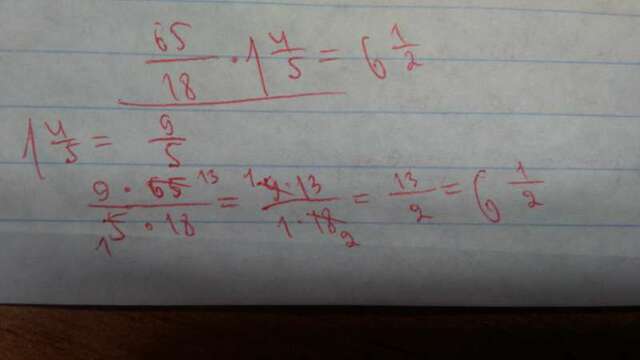 65/18 · 1 4/5 = 6 1/2
1 4/5 = 9/5
9 · 65 13 / 1 5 · 18 = 1 9 · 13 / 1 · 18 2 = 13/2 = 6 1/2